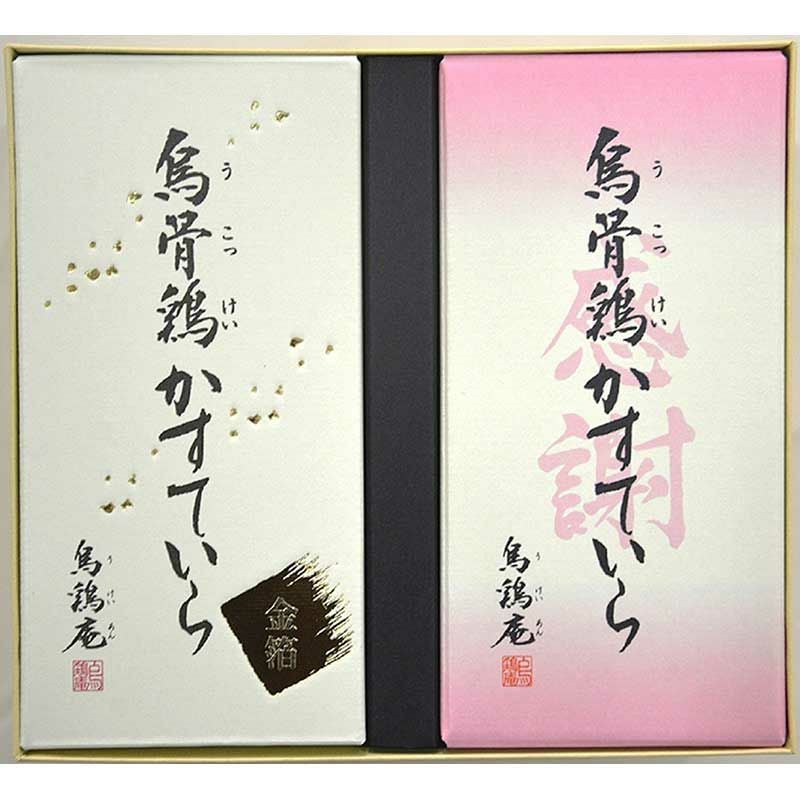 烏骨鶏かすていら
うこっけい
烏鶏庵
うけいあん
感謝
烏骨鶏かすていら
うこっけい
烏鶏庵
烏鶏庵
金箔